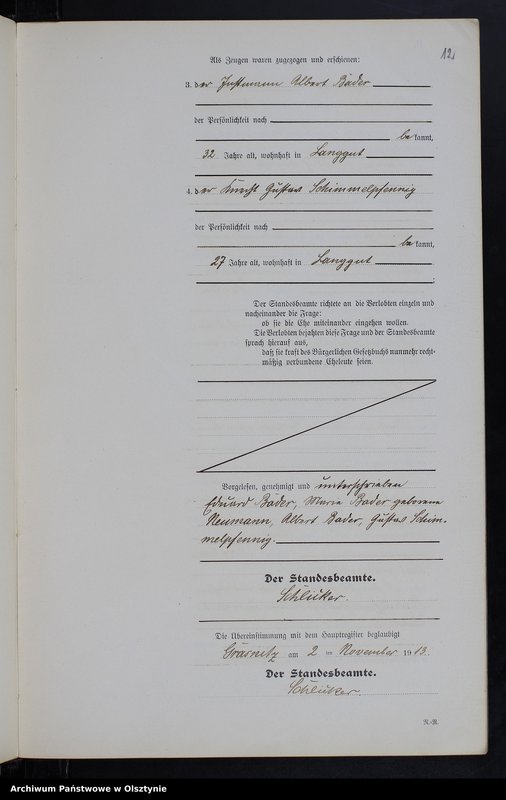 12.
Als Zeugen waren zugezogen und erschienen:
3. der Instmann Albert Bader
der Persönlichkeit nach
bekannt,
32 Jahre alt, wohnhaft in Langgut
4. der Knecht Gustav Schimmelpfennig
der Persönlichkeit nach
bekannt,
27 Jahre alt, wohnhaft in Langgut
;
Der Standesbeamte richtete an die Verlobten einzeln und
nacheinander die Frage:
ob sie die Ehe miteinander eingehen wollen.
Die Verlobten bejahten diese Frage und der Standesbeamte
sprach hierauf aus,
daß sie kraft des Bürgerlichen Gesetzbuchs nunmehr recht-
mäßig verbundene Eheleute seien.
Vorgelesen, genehmigt und unterschrieben
Eduard Bader, Marie Bader geborene
Neumann, Albert Bader, Gustav Schim-
melpfennig.
Der Standesbeamte.
Schlüker.
Die Übereinstimmung mit dem Hauptregister beglaubigt
Grasnitz am 2 ten November 1913.
Der Standesbeamte.
Schlüker.
R.-R.
Archiwum Państwowe w Olsztynie